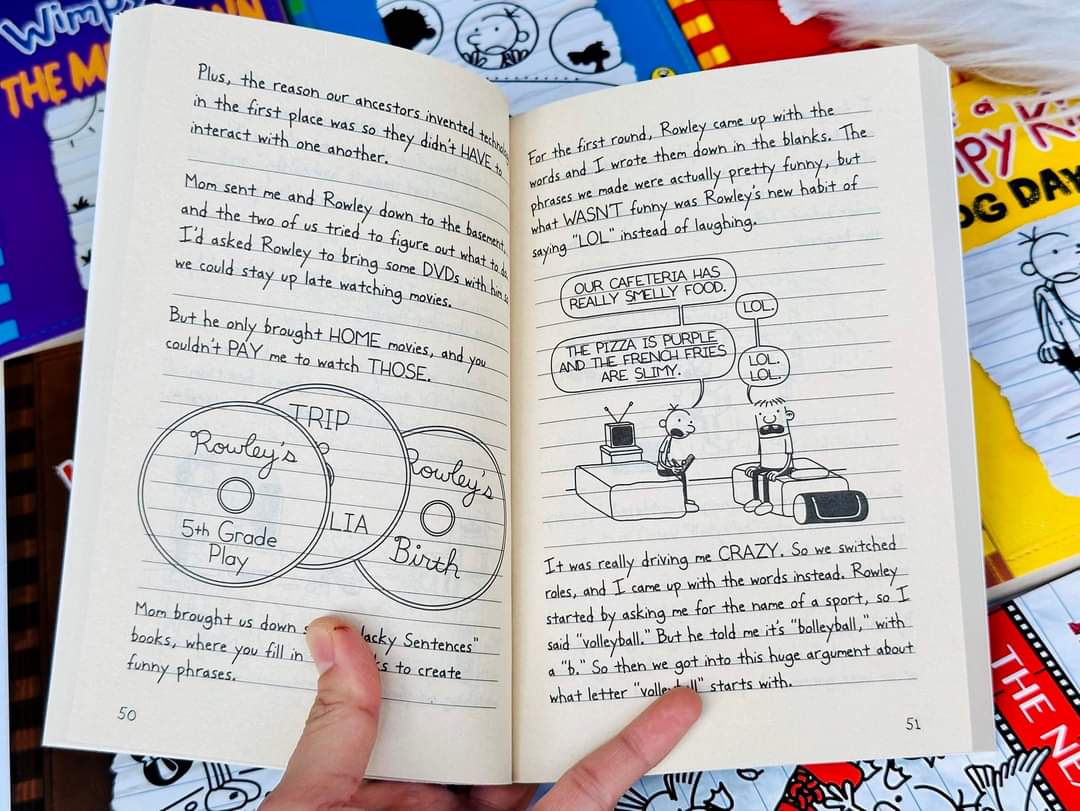 Wimpy
THE M
WN
a
py Ki
OG DAY
THE NE
Plus, the reason our ancestors invented technolo
in the first place was so they didn't HAVE to
interact with one another.
Mom sent me and Rowley down to the basement,
and the two of us tried to figure out what to do.
I'd asked Rowley to bring some DVDs with him so
we could stay up late watching movies.
But he only brought HOME movies, and you
couldn't PAY me to watch THOSE.
Rowley's
5th Grade
Play
TRIP
LIA
Rowley's
Birth
Mom brought us down s lacky Sentences"
books, where you fill in ks to create
funny phrases.
50
For the first round, Rowley came up with the
words and I wrote them down in the blanks. The
phrases we made were actually pretty funny, but
what WASN'T funny was Rowley's new habit of
saying "LOL" instead of laughing.
OUR CAFETERIA HAS
REALLY SMELLY FOOD.
LOL.
THE PIZZA IS PURPLE
AND THE FRENCH FRIES
ARE SLIMY.
LOL.
LOL.
It was really driving me CRAZY. So we switched
roles, and I came up with the words instead. Rowley
started by asking me for the name of a sport, so I
said "volleyball." But he told me it's "bolleyball," with
a "b." So then we got into this huge argument about
what letter "volleyball" starts with.
51